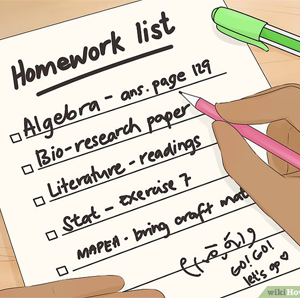 Homework list
Algebra - ans. page 129
Bio-research paper
Literature - readings
Stat - exercise 7
MAPEH - bring craft mat
GO! GO!
let's go
wikiHow